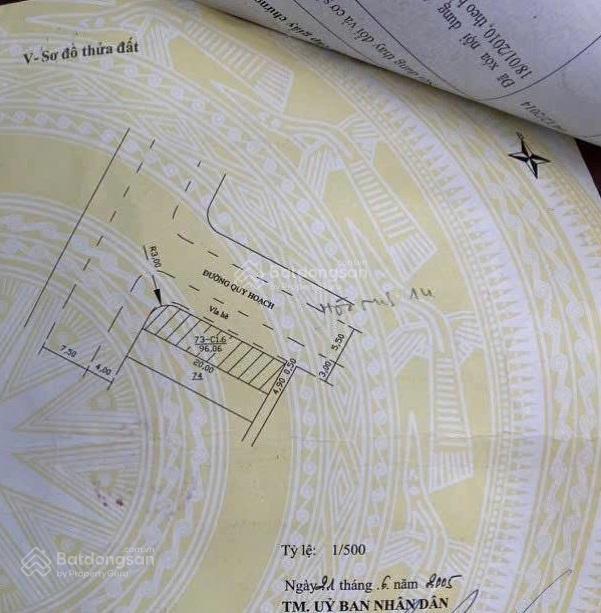 Đã xóa nội dung
18/01/2010, theo
V- Sơ đồ thửa đất
R3,00
ĐƯỜNG QUY HOẠCH
Vỉa hè
73-C1.6
96,06
20,00
74
7,50
4,00
4,90
0,50
3,00
5,50
Batdongsan
.com.vn
Tỷ lệ: 1/500
Ngày 21 tháng 6 năm 2005
TM. UỶ BAN NHÂN DÂN
Batdongsan
.com.vn
by PropertyGuru